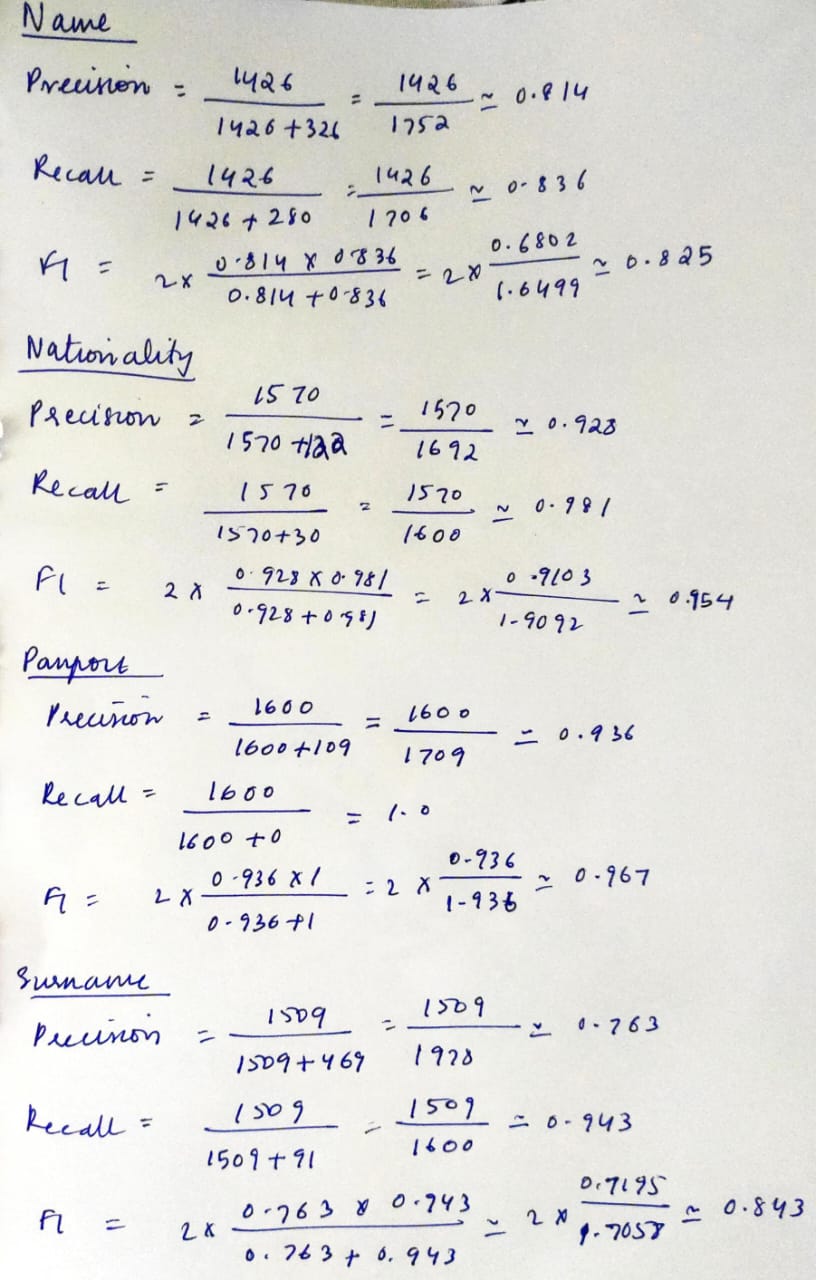 Name
Precision = 1426 / 1426 + 326 = 1426 / 1752 ≃ 0.814
Recall = 1426 / 1426 + 280 = 1426 / 1706 ≃ 0.836
F1 = 2 x 0.814 x 0836 / 0.814 + 0.836 = 2 x 0.6802 / 1.6499 ≃ 0.825
Nationality
Precision = 1570 / 1570 + 122 = 1570 / 1692 ≃ 0.928
Recall = 1570 / 1570+30 = 1570 / 1600 ≃ 0.981
F1 = 2 x 0.928 x 0.981 / 0.928 + 0.981 = 2 x 0.9103 / 1.9092 ≃ 0.954
Passport
Precision = 1600 / 1600 + 109 = 1600 / 1709 ≃ 0.936
Recall = 1600 / 1600 + 0 = 1.0
F1 = 2 x 0.936 x 1 / 0.936 + 1 = 2 x 0.936 / 1.936 ≃ 0.967
Surname
Precision = 1509 / 1509 + 469 = 1509 / 1978 ≃ 0.763
Recall = 1509 / 1509 + 91 = 1509 / 1600 ≃ 0.943
F1 = 2 x 0.763 x 0.943 / 0.763 + 0.943 ≃ 2 x 0.7195 / 1.7058 ≃ 0.843